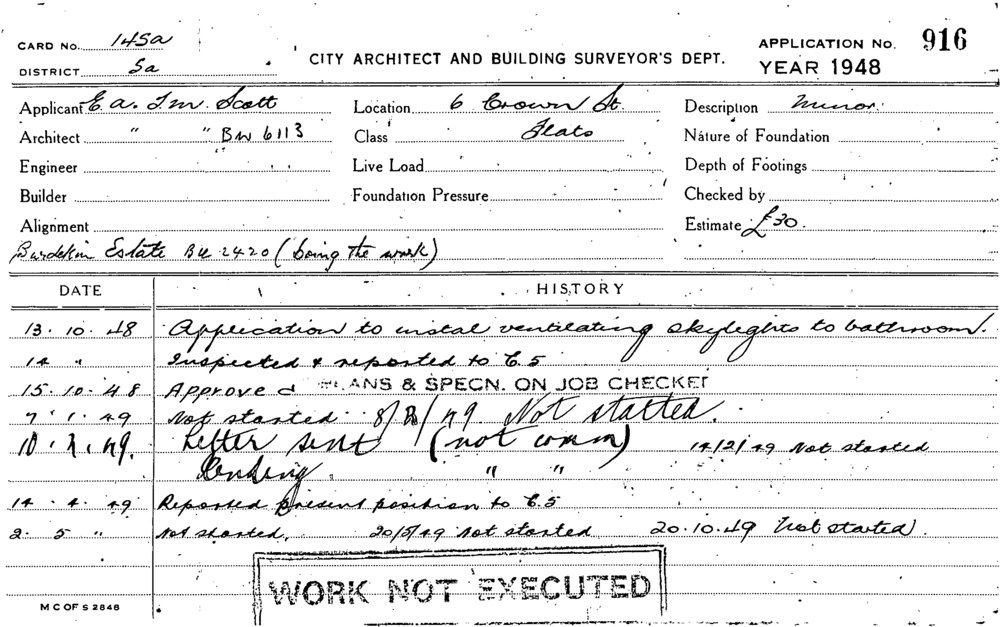 CARD No. 145a
DISTRICT 5a
CITY ARCHITECT AND BUILDING SURVEYOR'S DEPT.
APPLICATION No. 916
YEAR 1948
Applicant E. A. & T. M. Scott Location 6 Crown St. Description Minor
Architect " " BW 6113 Class Flats Nature of Foundation
Engineer Live Load Depth of Footings
Builder Foundation Pressure Checked by
Alignment Estimate £30.
Burdekin Estate BU 2420 (doing the work)
DATE HISTORY
13.10.48 Application to instal ventilating skylights to bathroom.
14 " Inspected & reported to C.5
15.10.48 Approved PLANS & SPECN. ON JOB CHECKET
7.1.49 Not started 8/2/49 Not started.
10.1.49. Letter sent (not comm) 14/2/49 Not started
Pending. " "
14.4.49 Reported present position to C.5
2.5 " Not started. 20/5/49 Not started 20.10.49 Not started.
WORK NOT EXECUTED
M C OF S 2848